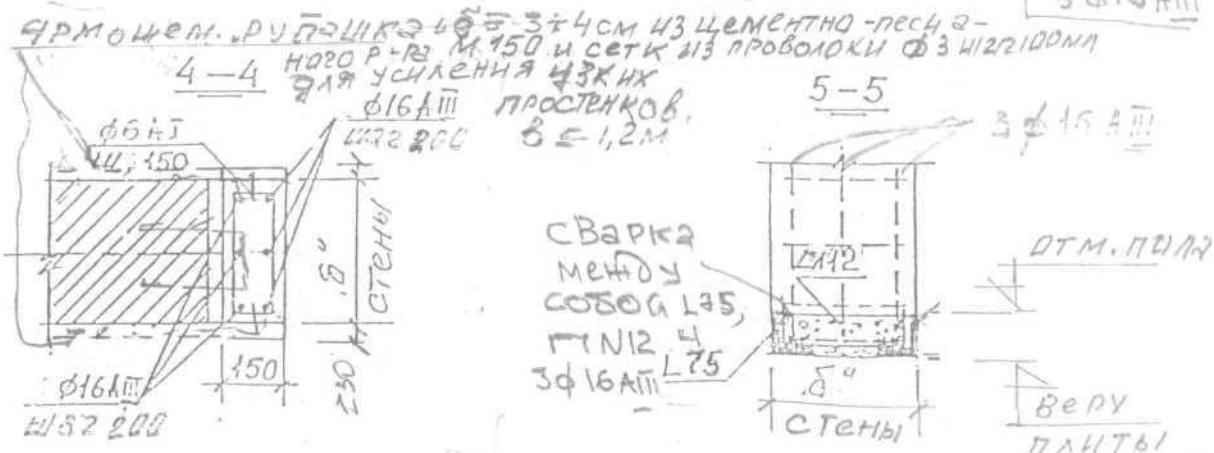 Армоцем. рубашка δ = 3÷4см из цементно-песча-
ного р-ра М.150 и сетк из проволоки ф3 шаг 100мм
для усиления узких
простенков.
в ≤ 1,2м
4-4
ф6АI
ш. 150
ф16АIII
шаг 200
"б"
стены
150
230
ф16АIII
шаг 200
5-5
3ф16АIII
сварка
между
собой L75,
N12 и
3ф16АIII
L75
"б"
стены
отм. пола
верх
плиты